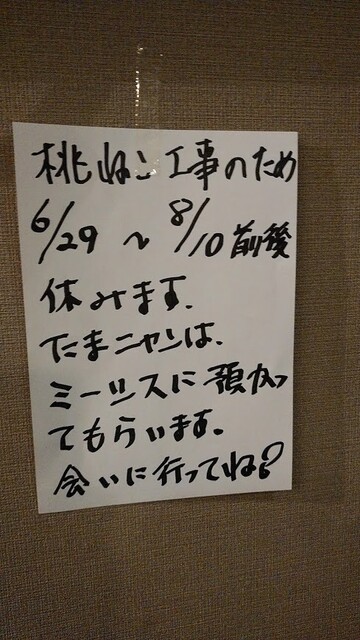 桃ねこ工事のため
6/29 〜 8/10 前後
休みます.
たまニャンは、
ミーシスに預かっ
てもらいます.
会いに行ってね?